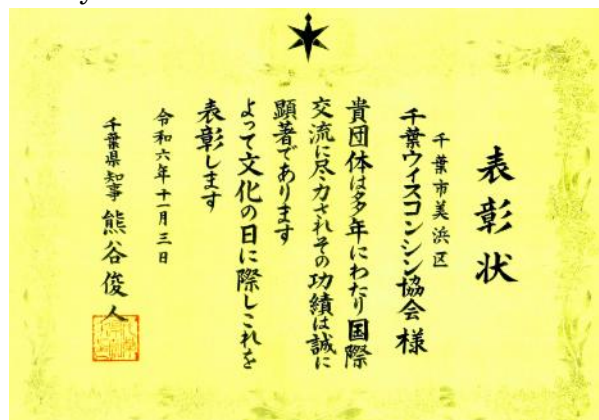 表彰状
千葉市美浜区
千葉ウィスコンシン協会様
貴団体は多年にわたり国際
交流に尽力されその功績は誠に
顕著であります
よって文化の日に際しこれを
表彰します
令和六年十一月三日
千葉県知事 熊谷俊人